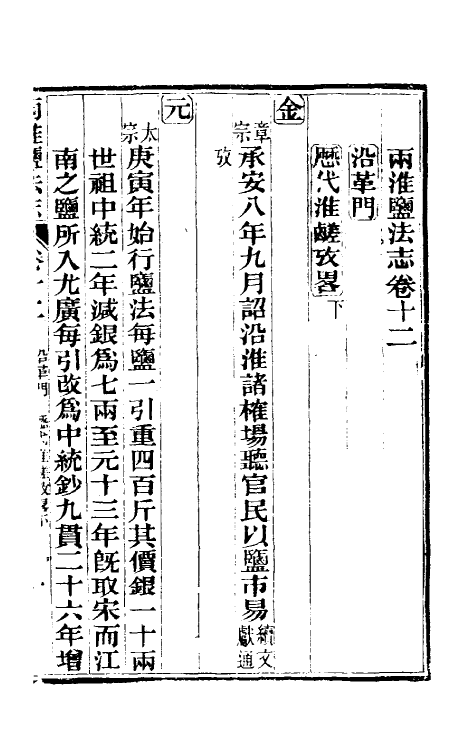 兩淮鹽法志卷十二
沿革門
歷代淮鹺攷畧下
金
章宗承安八年九月詔沿淮諸榷場聽官民以鹽市易續文獻通
攷
元
太宗庚寅年始行鹽法每鹽一引重四百斤其價銀一十兩
世祖中統二年減銀爲七兩至元十三年旣取宋而江
南之鹽所入尤廣每引改爲中統鈔九貫二十六年增
沿革門